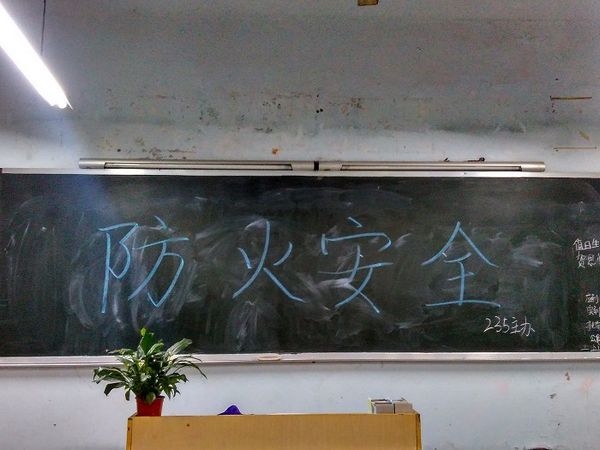 防火安全
235主办
值日生